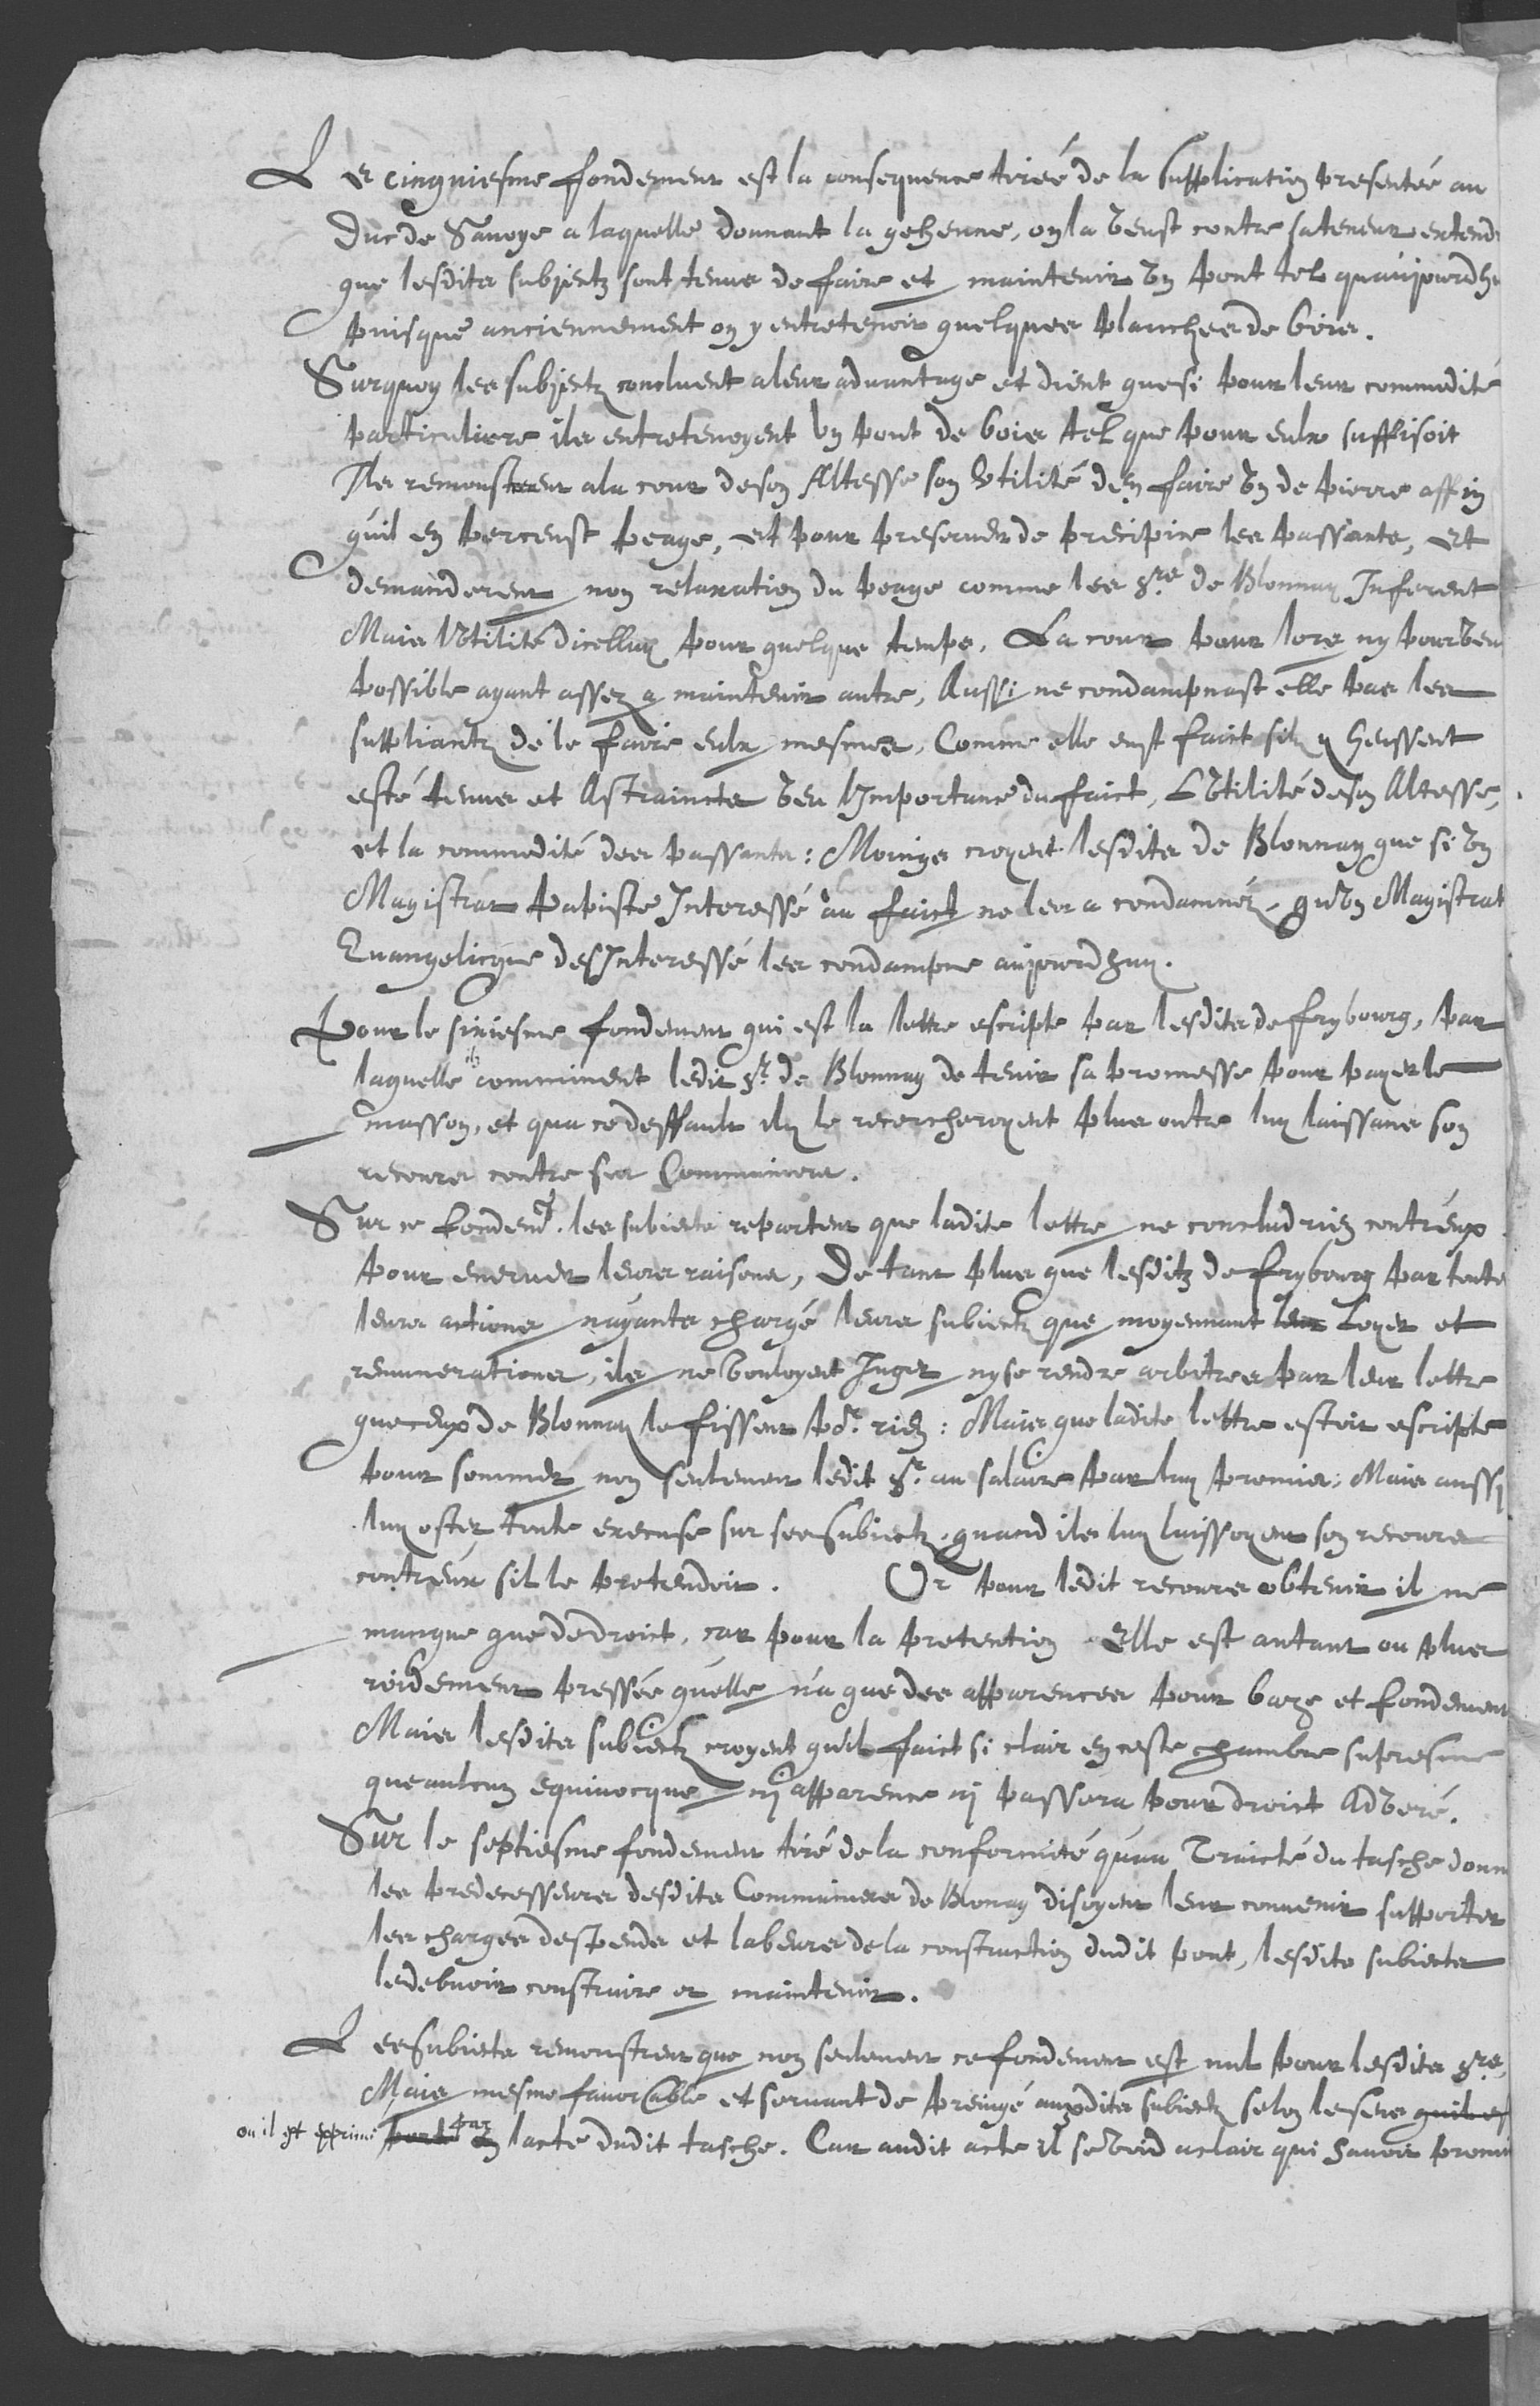 Le cinquiesme fondement est la consequence tirée de la supplication presentée au
Duc de Savoye a laquelle donnant la gehenne, on la veust contre sa teneur entend
que lesdits subjectz sont tenus de faire et maintenir un pont tel quaujourdh
puisque anciennement on y entretenoit quelques planches de bois.
Surquoy les subjectz concluent a leur advantage et dient que si pour leur commodité
particuliere ils entretenoyent un pont de bois tel que pour eulx suffisoit
Ils remonstrent a la cour de son Altesse son utilité den faire un de pierre affin
quil en perceust peage, et pour preserver de precipice les passants, et
demanderent non relaxation du peage comme les srs de Blonnay Inferent
Mais lutilité dicelluy pour quelque temps. La cour pour lors ny pourveu
possible ayant assez a maintenir autre, Aussi ne condampnast elle pas les
suppliantz de le faire eulx mesmes, Comme elle eust faict silz y heussent
esté tenus et Astraincts veu limportance du faict, Lutilité de son Altesse,
et la commodité des passants: Moings croyent lesdits de Blonnay que si un
Magistrat Papiste Interessé au faict ne les a condamnéz, qu'un Magistrat
Evangelicque desInteressé les condampne aujourdhuy.
Pour le sixiesme fondement qui est la lettre escripte par lesdits de frybourg, par
laquelle ilz comminent ledit sr de Blonnay de tenir sa promesse pour payer le
masson, et qua ce deffault ilz le recercheroyent plus outre luy laissans son
recours contre ses Communiers.
Sur ce fondemt les subiects repartent que ladite lettre ne conclud rien contr'eux
pour enerver leurs raisons, De tant plus que lesditz de frybourg par toute
leurs actions nayants chargé leurs subiectz que moyennant leur Loyer et
remunerations, ils ne vouloyent Juger ny se rendre arbitres par leur lettre
que ceux de Blonnay le fissent pr rien: Mais que ladite lettre estoit escripte
pour sommer non seulement ledit Sr au salaire par luy promis: Mais aussi
luy oster toute excuse sur ses subiectz, quand ils luy laissoyent son recours
contr'eux sil le pretendoit. Or pour ledit recours obtenir il ne
manque que de droict, car pour la pretention elle est autant ou plus
roidement pressée quelle n'a que des apparences pour baze et fondement
Mais lesdits subiectz croyent qu'il faict si clair en ceste chambre supresme
que aulcun equivocque ni apparence ni passera pour droict Adveré.
Sur le septiesme fondement tiré de la conformité quau Traicté du tasche donn
les predecesseurs desdits Communiers de Blonay disoyent leur convenir supporter
les charges despends et labeurs de la construction dudit pont, lesdits subiects
le debvoir construire et maintenir.
Les subiects remonstrent que non seulement ce fondement est nul pour lesdits srs,
Mais mesme favorable et servant de preiugé auxdits subiectz selon le sens quil es
ou il est exprimé porté par en lacte dudit tasche. Car audit acte il se void a clair qui havoit promis